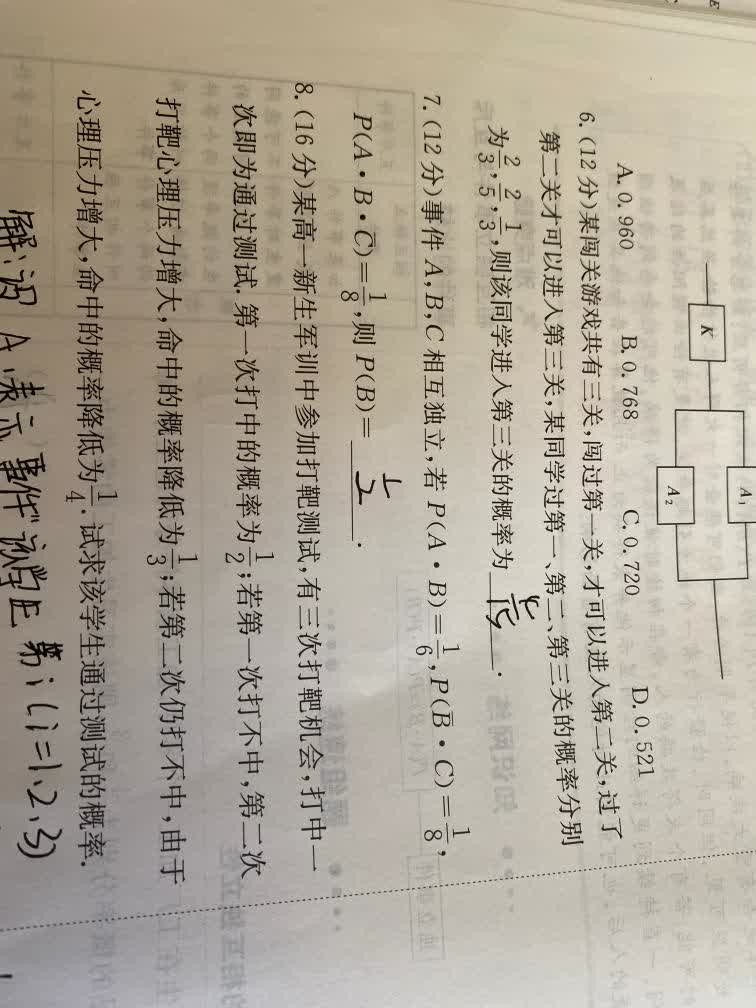 K
A₁
A₂
A. 0.960 B. 0.768 C. 0.720 D. 0.521
6. (12 分)某闯关游戏共有三关,闯过第一关,才可以进入第二关,过了
第二关才可以进入第三关,某同学过第一、第二、第三关的概率分别
为2/3,2/5,1/3,则该同学进入第三关的概率为 4/15 .
7. (12 分)事件 A,B,C 相互独立,若 P(A·B)=1/6,P(B̄·C)=1/8,
P(A·B·C̄)=1/8,则 P(B)= 1/2 .
8. (16 分)某高一新生军训中参加打靶测试,有三次打靶机会,打中一
次即为通过测试. 第一次打中的概率为1/2;若第一次打不中,第二次
打靶心理压力增大,命中的概率降低为1/3;若第二次仍打不中,由于
心理压力增大,命中的概率降低为1/4. 试求该学生通过测试的概率.
解:设 A 表示事件"该学生第 i (i=1.2.3)